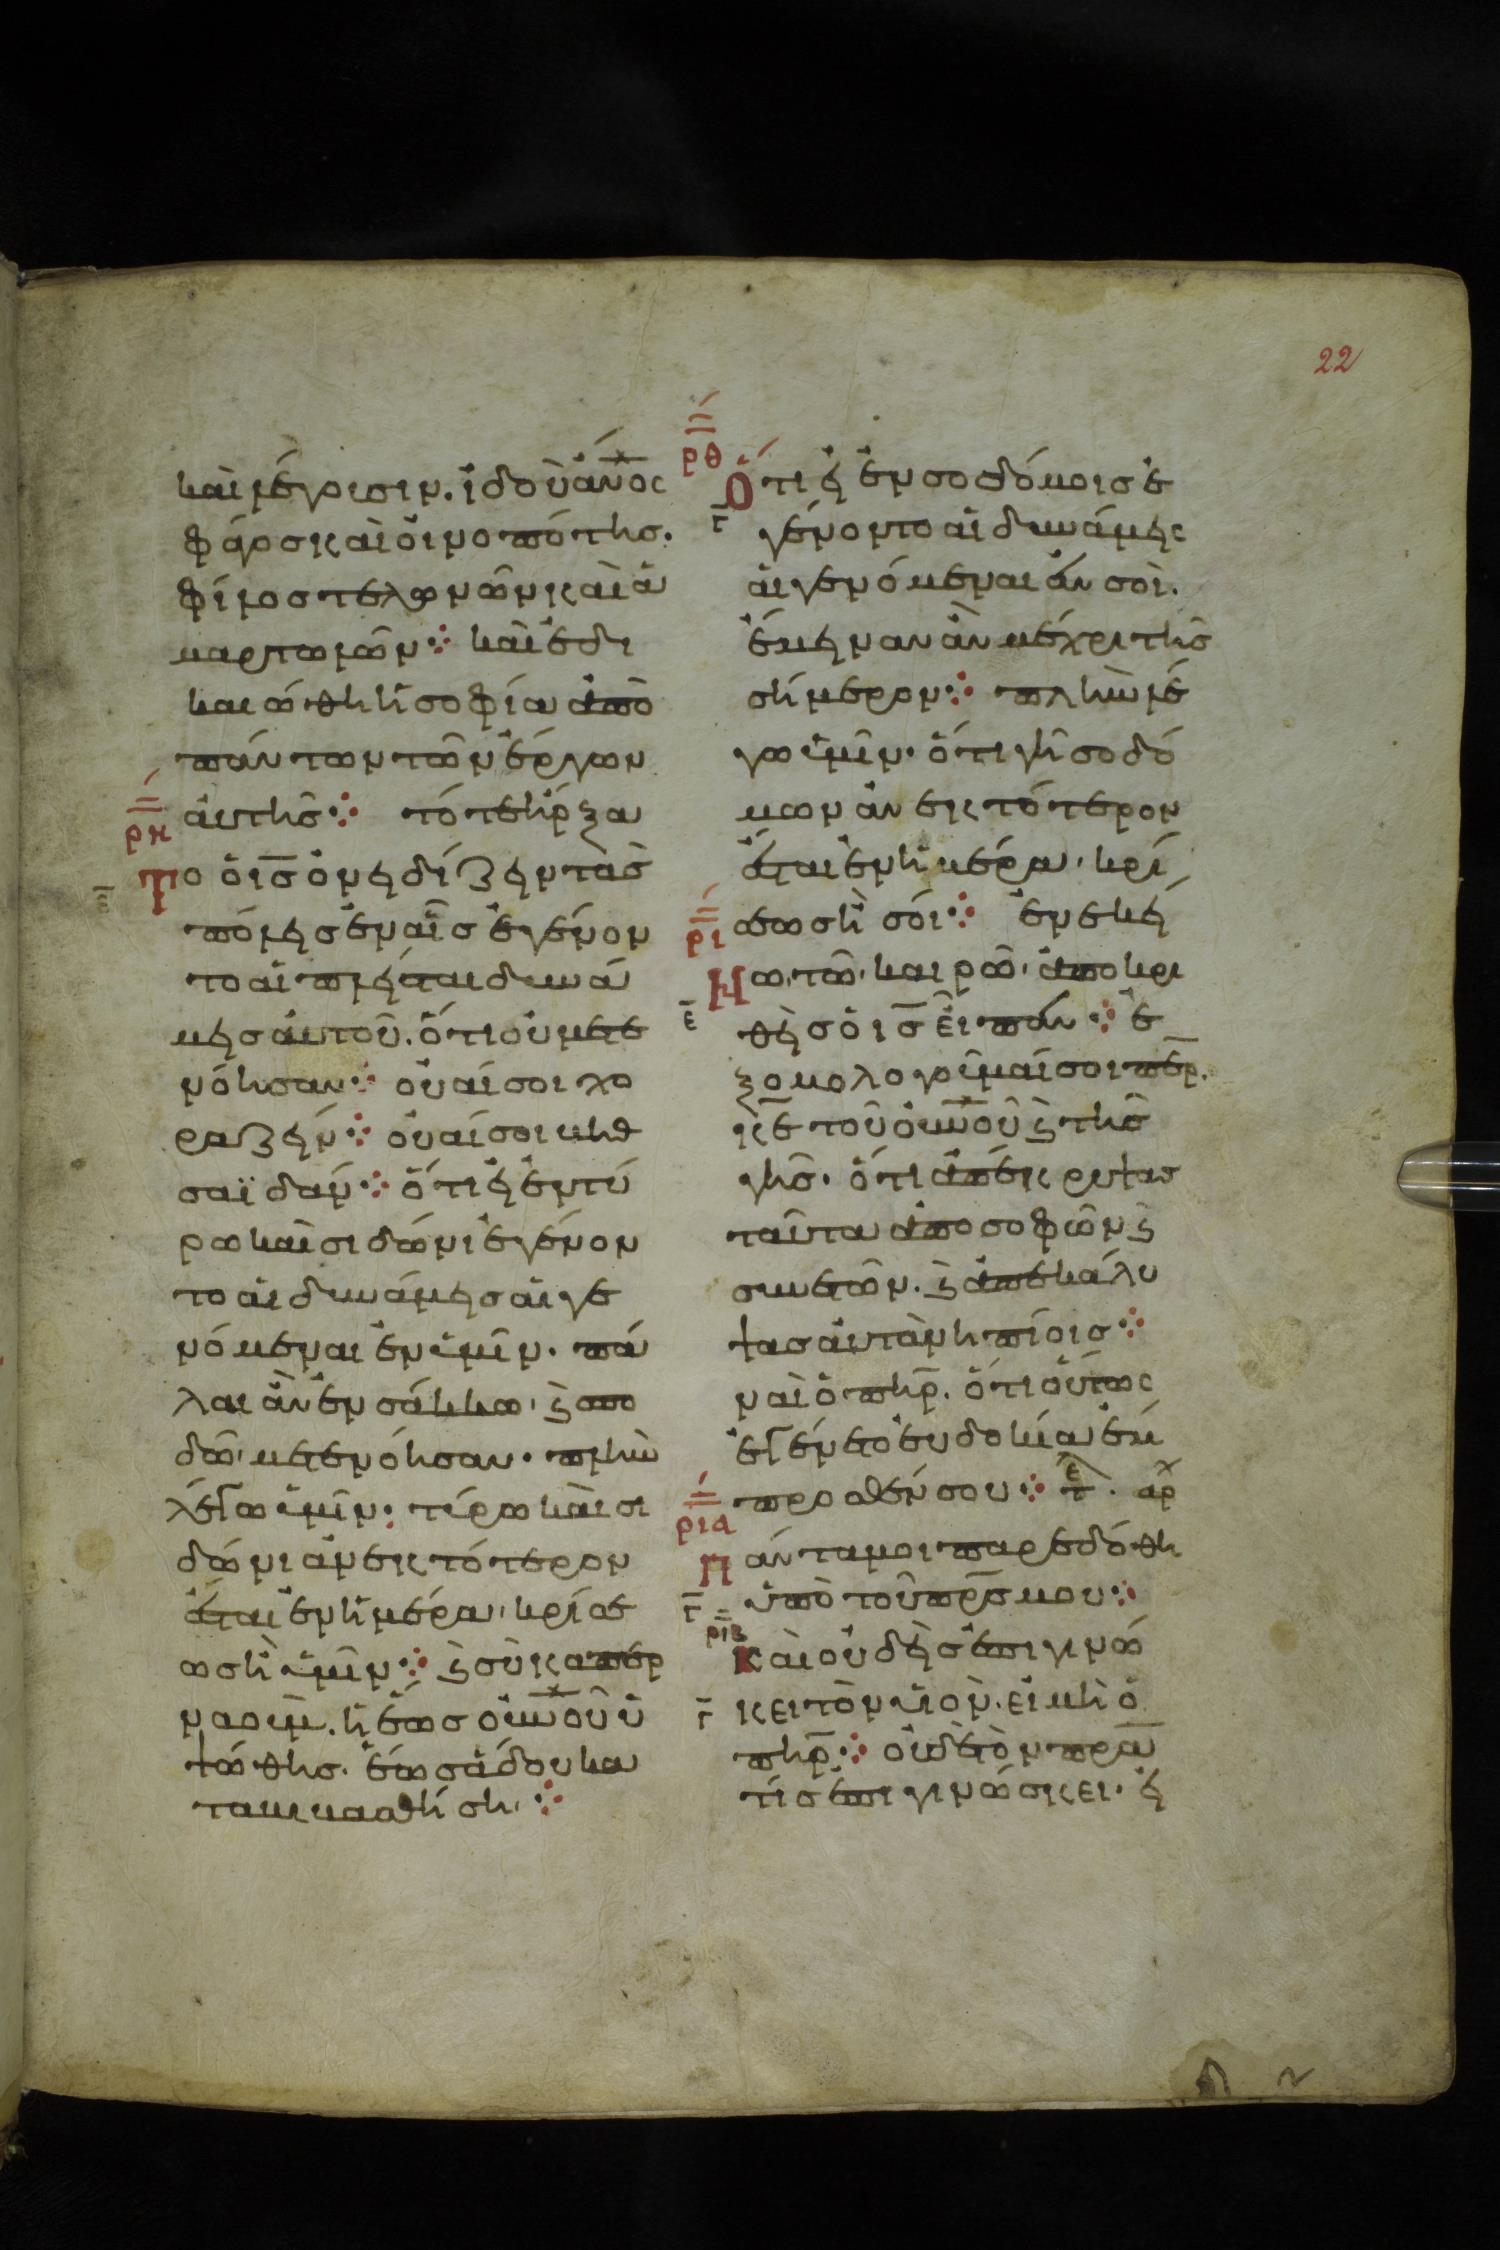 22
καὶ λέγουσιν. ἰδοὺ ἄν̅ος
φάγος καὶ οἰνοπότης.
φίλος τελωνῶν καὶ ἁ
μαρτωλῶν ⁘ καὶ ἐδι
καιώθη ἡ σοφία ἀπὸ
πάντων τῶν ἔργων
ρη
αὐτῆς ⁘ τότε ἤρξα
Το ὁ ις̅ ὀνειδίζειν τὰς
πόλεις ἐν αἷς ἐγένον
το αἱ πλεῖσται δυνά
μεις αὐτοῦ. ὅτι οὐ μετε
νόησαν ⁘ οὐαί σοι χο
ραζείν ⁘ οὐαί σοι βηθ
σαϊδάν ⁘ ὅτι εἰ ἐν τύ
ρω καὶ σιδώνι ἐγένον
το αἱ δυνάμεις αἱ γε
νόμεναι ἐν ὑμῖν. πά
λαι ἂν ἐν σάκκω, ϗ σπο
δῶ μετενόησαν. πλὴν
λέγω ὑμῖν. τύρω καὶ σι
δώνι ἀνεκτότερον
ἔσται ἐν ἡμέρα κρίσε
ως ἢ ὑμῖν ⁘ ϗ σὺ καπερ
ναούμ. ἡ ἕως οὐν̅οῦ ὑ
ψώθης. ἕως ἅδου κα
ταβιβασθήση ⁘
ρθ
Ὅτι εἰ ἐν σοδόμοις ἐ
γ̅
γένοντο αἱ δυνάμεις
αἱ γενόμεναι ἐν σοὶ.
ἔμειναν ἂν μέχρι τῆς
σήμερον ⁘ πλὴν λέ
γω ὑμῖν. ὅτι γῆ σοδό
μων ἀνεκτότερον
ἔσται ἐν ἡμέρα κρί
ρι
σεως ἢ σοί ⁘ ἐν ἐκεί
Νω τῶ καιρῶ ἀποκρι
ε̅
θεὶς ὁ ις̅ εἶπεν ⁘ ἐ
ξομολογοῦμαί σοι πε̅ρ.
κ̅ε τοῦ οὐν̅οῦ ϗ τῆς
γῆς. ὅτι ἀπέκρυψας
ταῦτα ἀπὸ σοφῶν ϗ
συνετῶν. ϗ ἀπεκάλυ
ψας αὐτὰ νηπίοις ⁘
ναὶ ὁ πη̅ρ. ὅτι οὕτως
ἐγένετο εὐδοκία ἔμ
προσθέν σου ⁘ τε. αρχ
ρια
Πάντα μοι παρεδόθη
γ̅
ὑπὸ τοῦ πρ̅ς μου ⁘
ριβ
Καὶ οὐδεὶς ἐπιγινώ
γ̅
σκει τὸν υἱὸν. εἰ μὴ ὁ
πη̅ρ ⁘ οὐδὲ τὸν πρ̅α
τίς ἐπιγινώσκει. εἰ